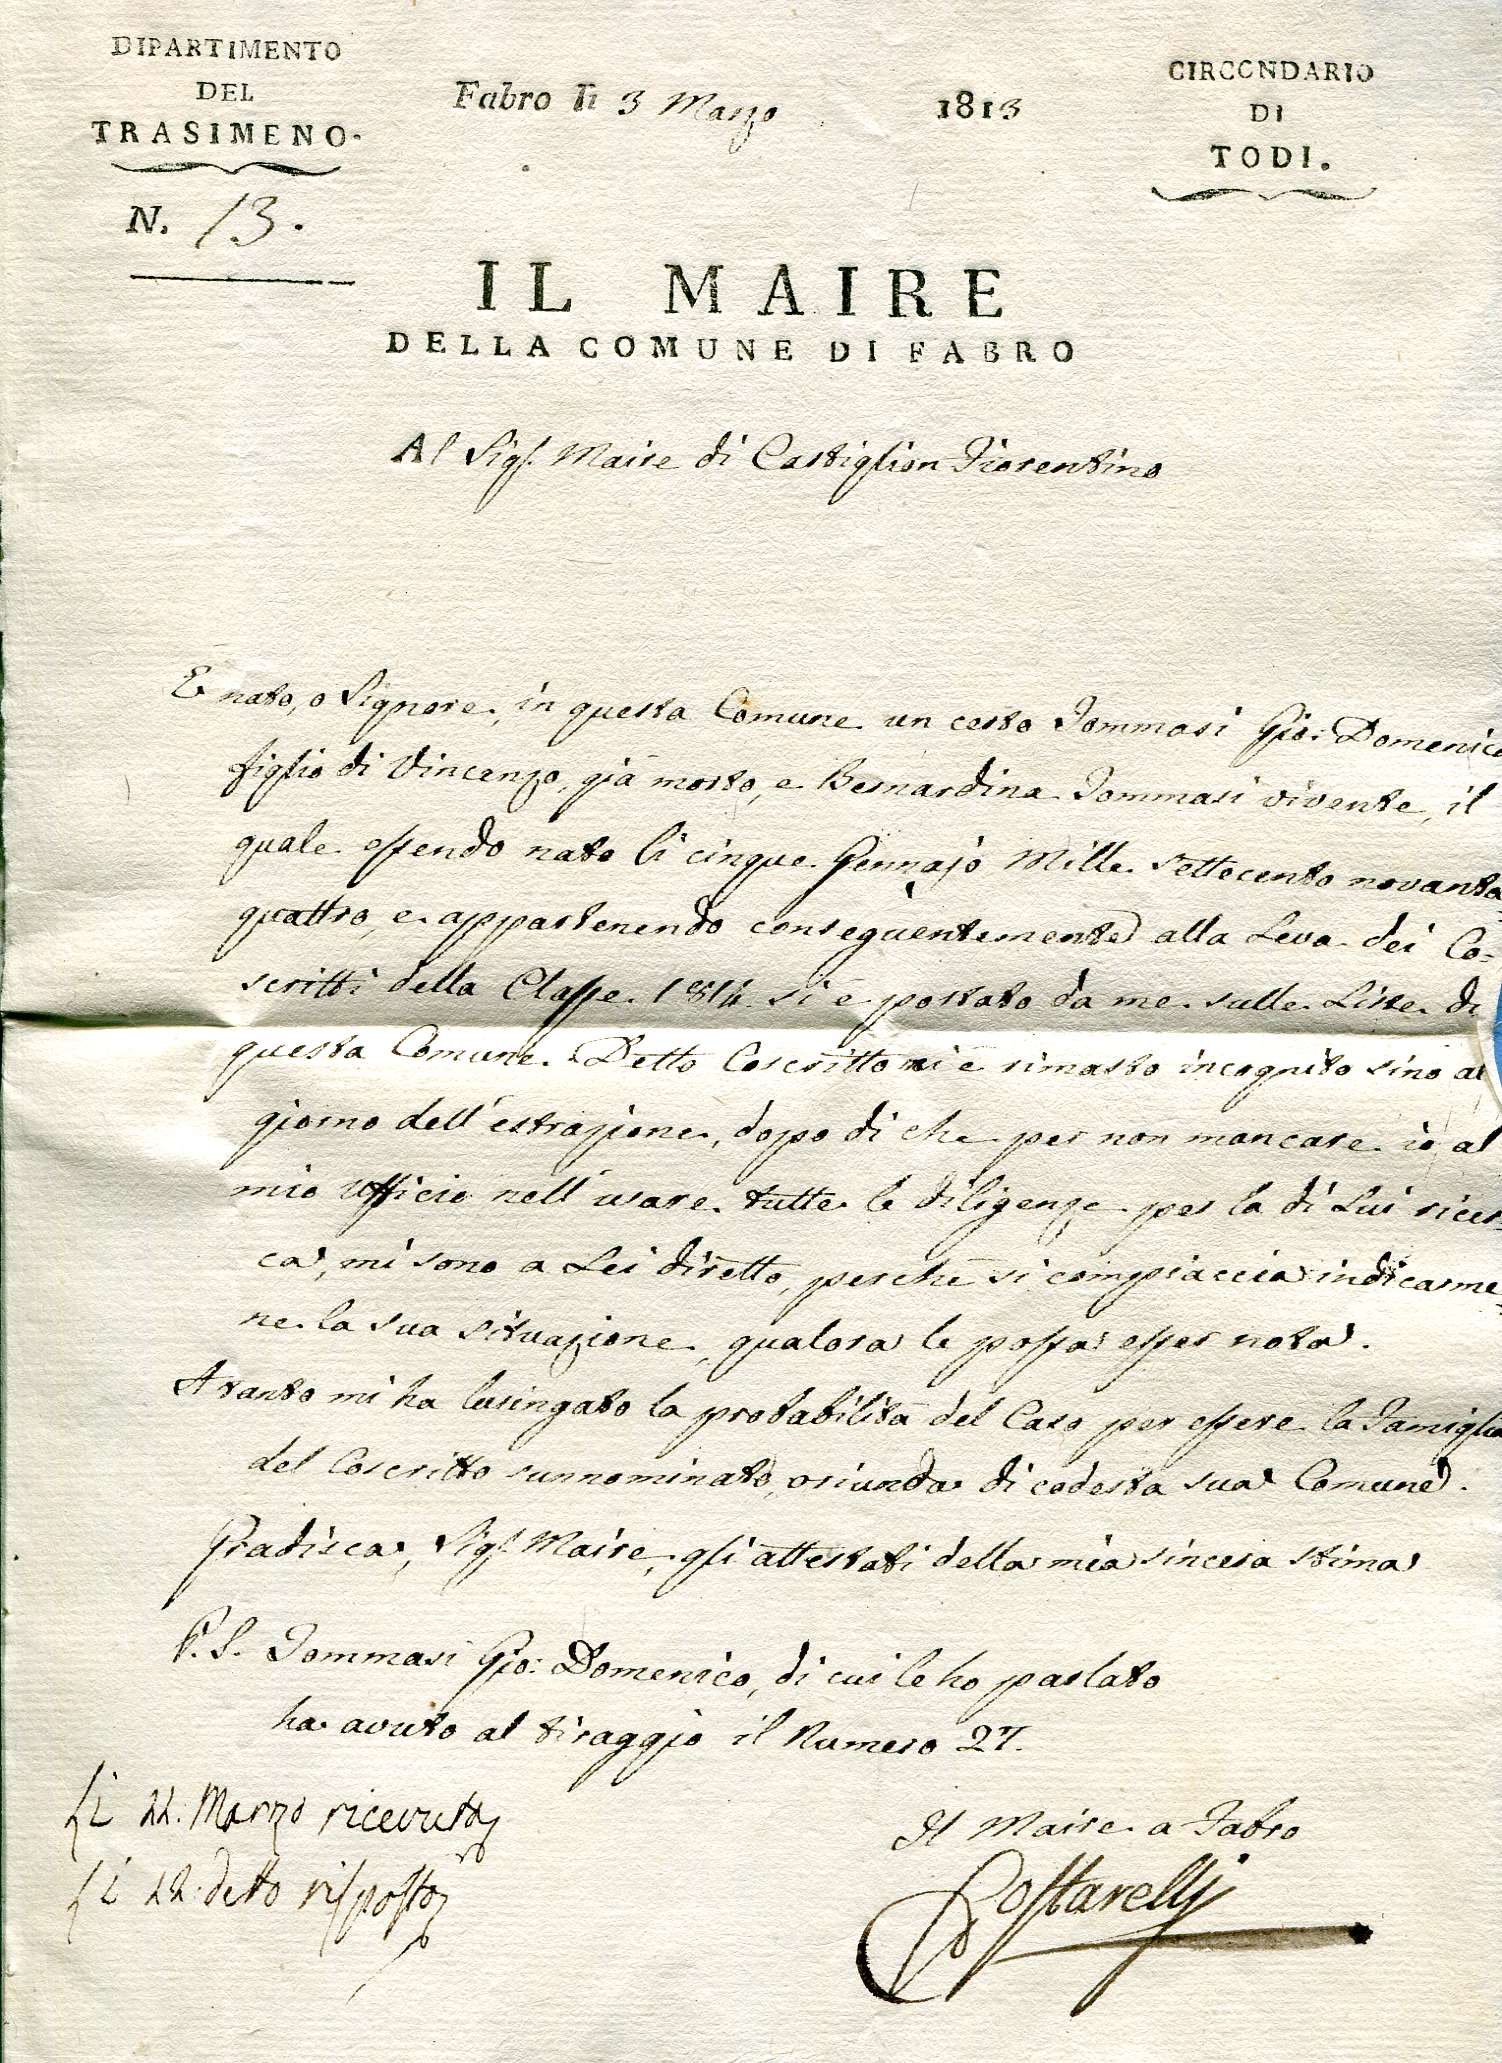 DIPARTIMENTO
DEL
TRASIMENO.
N. 13.
Fabro li 3 Marzo 1813
CIRCONDARIO
DI
TODI.
IL MAIRE
DELLA COMUNE DI FABRO
Al Sigr. Maire di Castiglion Fiorentino
E nato, o Signore, in questa Comune un certo Tommasi Gio: Domenico
figlio di Vincenzo, già morto, e Bernardina Tommasi vivente, il
quale essendo nato li cinque Gennajo Mille Settecento novanta
quattro, e appartenendo conseguentemente alla Leva dei Co=
scritti della Classe 1814 si è portato da me sulle Liste di
questa Comune. Detto Coscritto mi è rimasto incognito sino al
giorno dell'estrazione, dopo di che per non mancare io al
mio Ufficio nell'usare tutte le diligenze per la di Lui ricer=
ca, mi sono a Lei diretto, perchè si compiaccia indicarme=
ne la sua situazione, qualora le possa esser nota.
A tanto mi ha lusingato la probabilità del Caso per essere la Famiglia
del Coscritto sunnominato, oriunda di codesta sua Comune.
Gradisca, Sigr. Maire, gli attestati della mia sincera stima
P.S. Tommasi Gio: Domenico, di cui le ho parlato
ha avuto al tiraggio il Numero 27.
li 22. Marzo ricevuta
li 22 detto risposto
Il Maire a Fabro